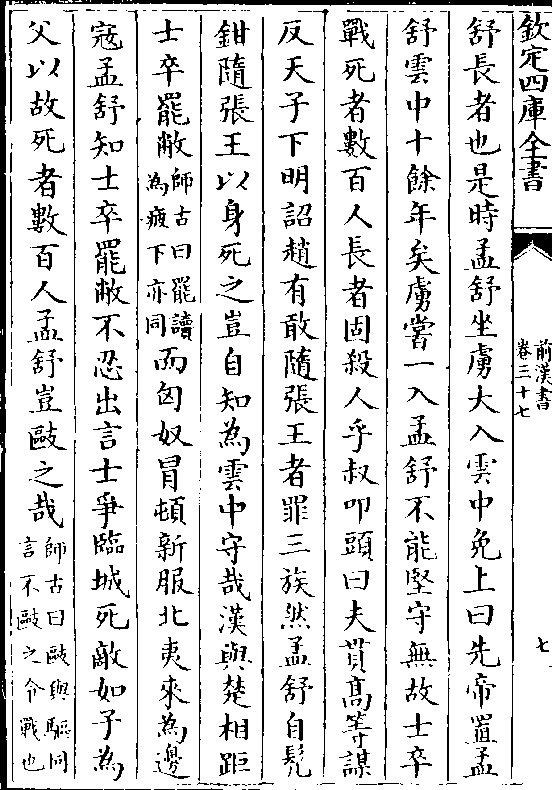 欽定四庫全書
前漢書
卷三十七
七
舒長者也是時孟舒坐虜大入雲中免上曰先帝置孟
舒雲中十餘年矣虜嘗一入孟舒不能堅守無故士卒
戰死者數百人長者固殺人乎叔叩頭曰夫貫髙等謀
反天子下明詔趙有敢隨張王者罪三族然孟舒自髡
鉗隨張王以身死之豈自知為雲中守哉漢與楚相距
士卒罷敝師古曰罷讀為疲下亦同而匈奴冒頓新服北夷來為邊
寇孟舒知士卒罷敝不忍出言士爭臨城死敵如子為
父以故死者數百人孟舒豈敺之哉師古曰敺與驅同言不敺之令戰也